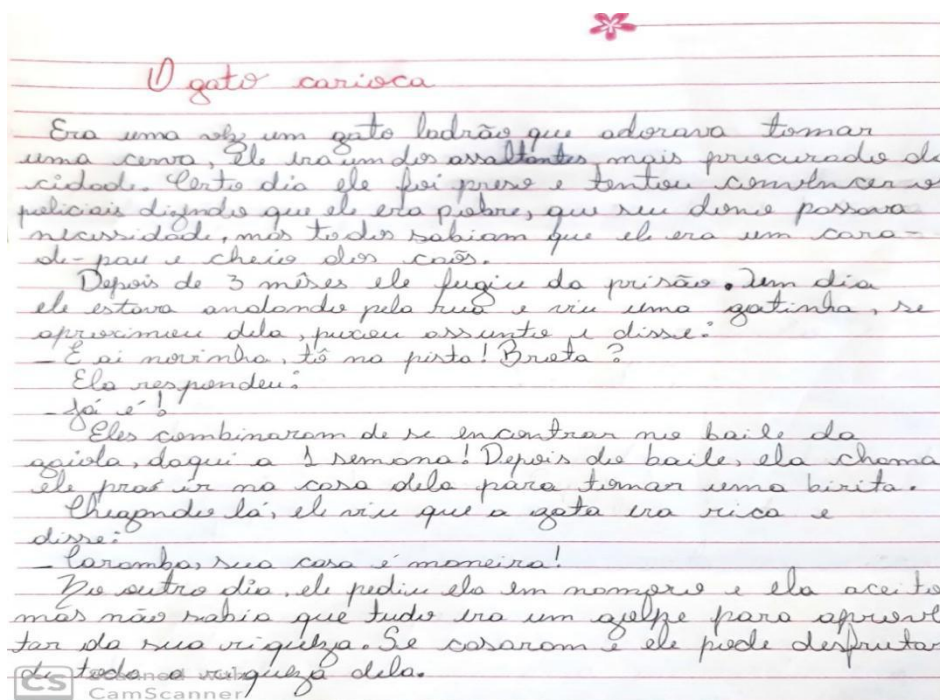 O gato carioca
Era uma vez um gato ladrão que adorava tomar
uma cerva, Ele era um dos assaltantes mais procurado da
cidade. Certo dia ele foi preso e tentou convencer os
policiais dizendo que ele era pobre, que seu dono passava
necessidade, mas todos sabiam que ele era um cara-
de-pau e cheio dos caôs.
Depois de 3 mêses ele fugiu da prisão. Um dia
ele estava andando pela rua e viu uma gatinha, se
aproximou dela, puxou assunto e disse:
- E ai novinha, tô na pista! Brota?
Ela respondeu:
- Já é!
Eles combinaram de se encontrar no baile da
gaiola, daqui a 1 semana! Depois do baile, ela chama
ele pra ir na casa dela para tomar uma birita.
Chegando lá, ele viu que a gata era rica e
disse:
- Caramba, sua casa é maneira!
No outro dia, ele pediu ela em namoro e ela aceito
mas não sabia que tudo era um golpe para aprovei
tar da sua riqueza. Se casaram e ele pode desfrutar
de toda a riqueza dela.
CS CamScanner